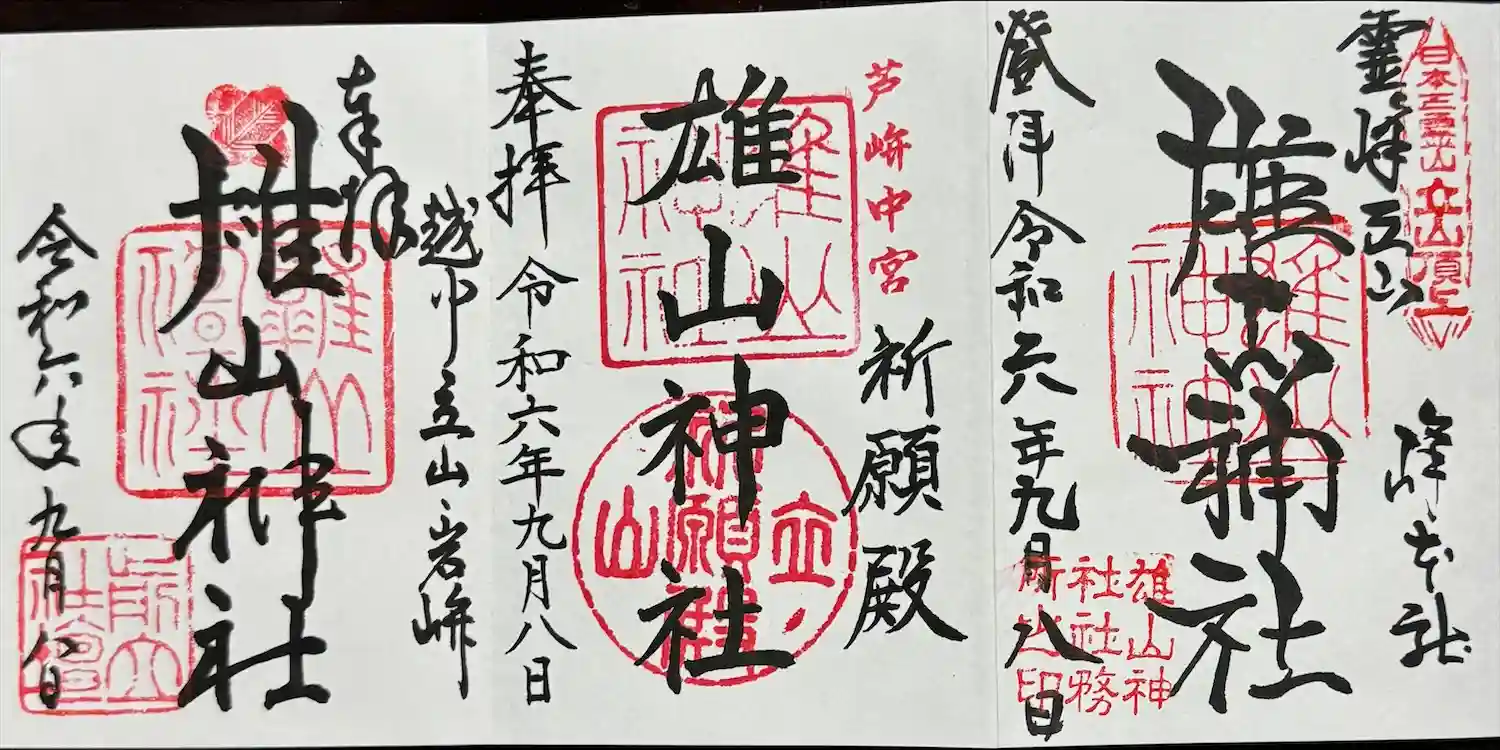 日本三霊山立山頂上
霊峰立山
峰本社
雄山神社
雄山神
社社務
所之印
登拝 令和六年九月八日
芦峅中宮
祈願殿
雄山神社
雄山神社
立山
祈願殿
奉拝 令和六年九月八日
越中立山岩峅
奉拝
雄山神社
令和六年九月八日